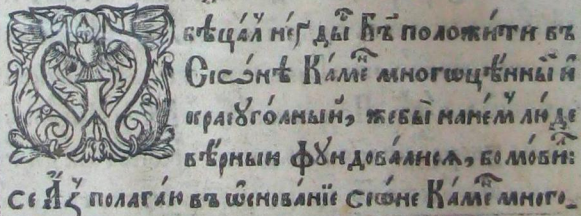 Ѡбѣцал нѣгды Бг҃ъ положити въ
Сїѡнѣ Камен многоцѣнный и
краеуголный, жебы на нем люде
вѣрныи фундовалися, бо мовит:
се Аз полагаю въ ѡснованїе сїѡне Камен много